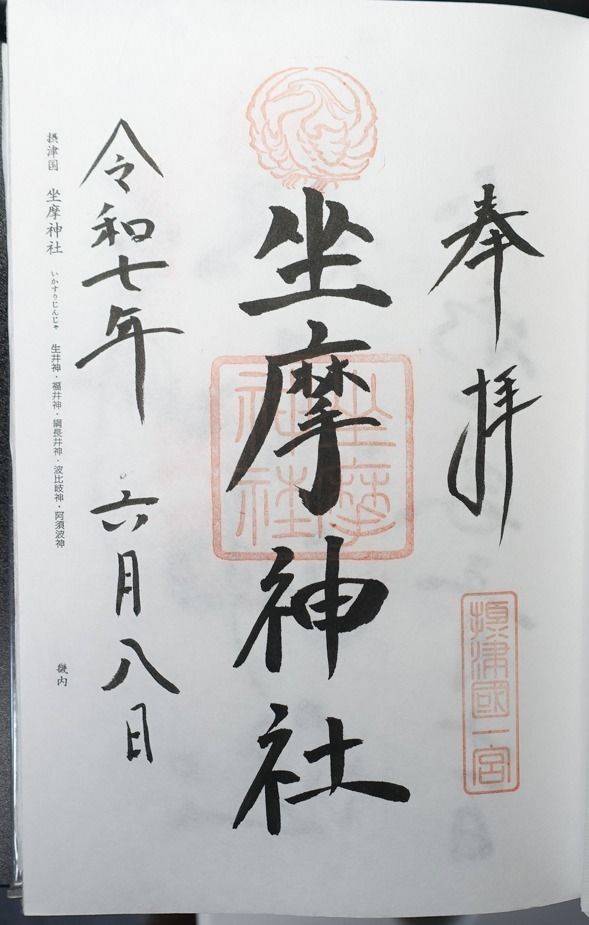 奉拝
摂津國一宮
坐摩神社
坐摩神社
令和七年 六月八日
摂津国 坐摩神社 いかすりじんじゃ 生井神・福井神・綱長井神・波比岐神・阿須波神 畿内